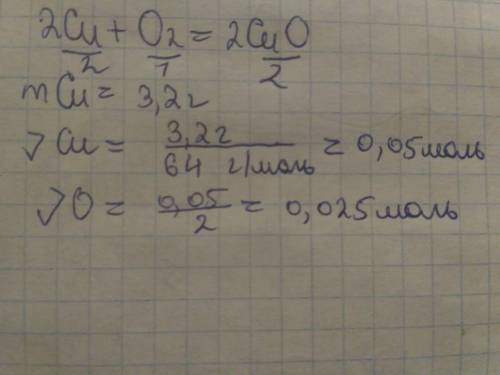 2Cu + O2 = 2CuO
2 1 2
mCu = 3,2г
νCu = 3,2г / 64 г/моль = 0,05моль
νO = 0,05 / 2 = 0,025моль